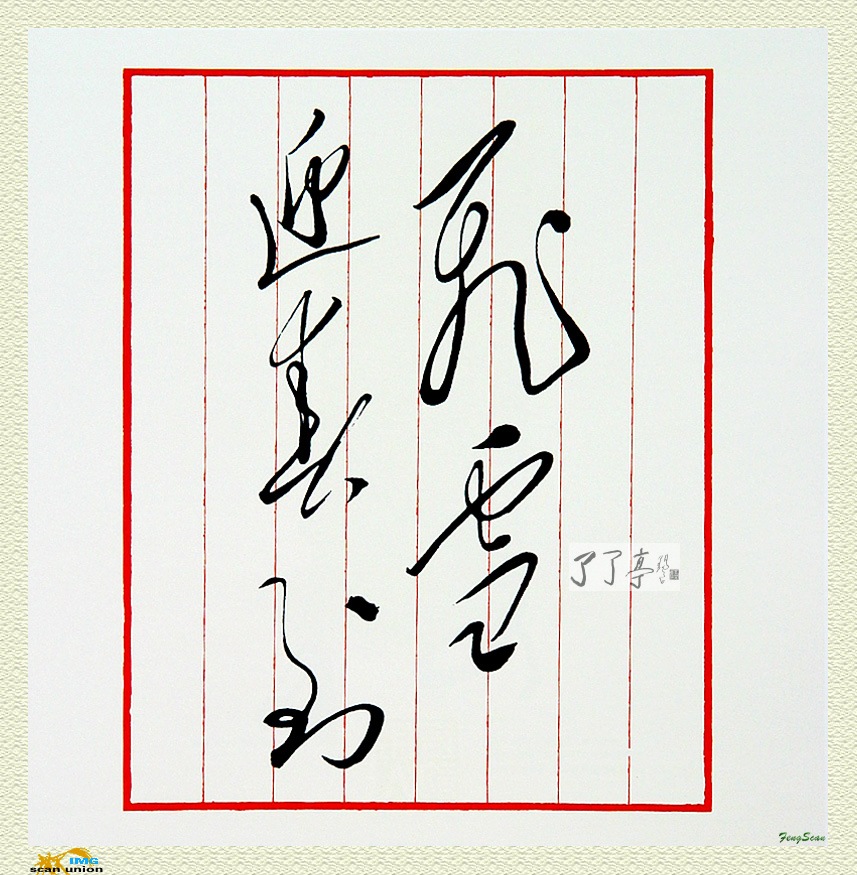 飛雪
迎春到
了了亭
FengScan
IMG
scan union